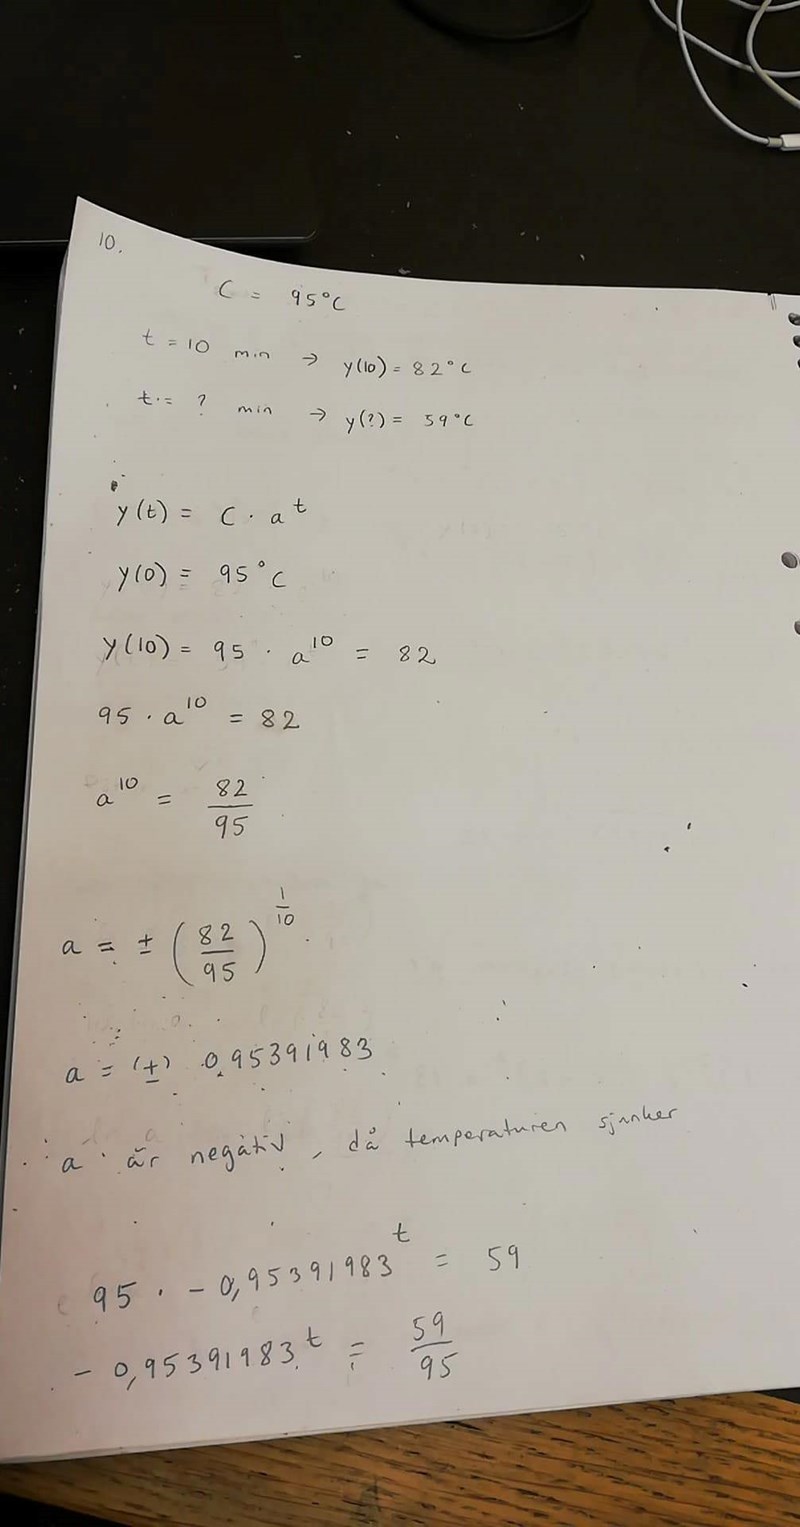 10.
C = 95°C
t = 10 min → y(10) = 82°C
t = ? min → y(?) = 59°C
y(t) = C · a^t
y(0) = 95°C
y(10) = 95 · a^10 = 82
95 · a^10 = 82
a^10 = 82/95
a = ± (82/95)^(1/10)
a = (±) 0,95391983
a är negativ, då temperaturen sjunker
95 · - 0,95391983^t = 59
- 0,95391983^t = 59/95